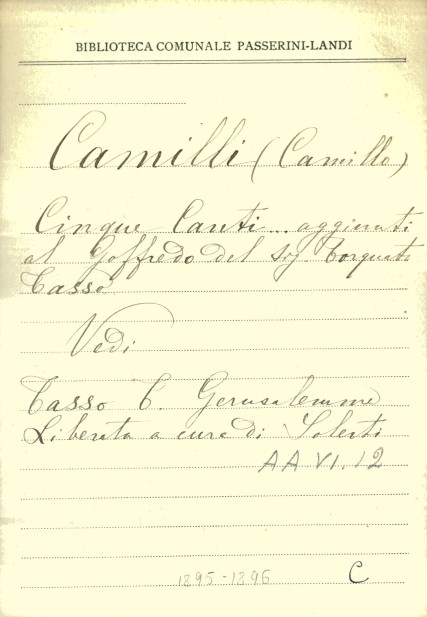 BIBLIOTECA COMUNALE PASSERINI-LANDI
Camilli (Camillo)
Cinque Canti... aggiunti
al Goffredo del Sig. Torquato
Tasso
Vedi
Tasso T. Gerusalemme
Liberata a cura di Solerti
AA VI. 12
1895-1896 C